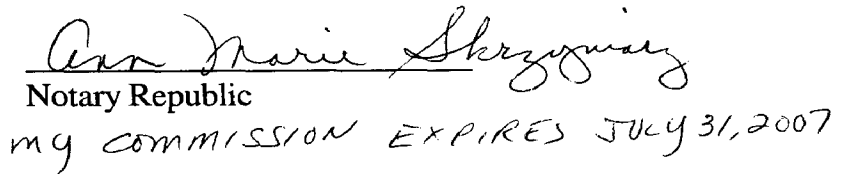 Ann Marie Skrzyniarz
Notary Republic
my COMMISSION EXPIRES JULY 31, 2007